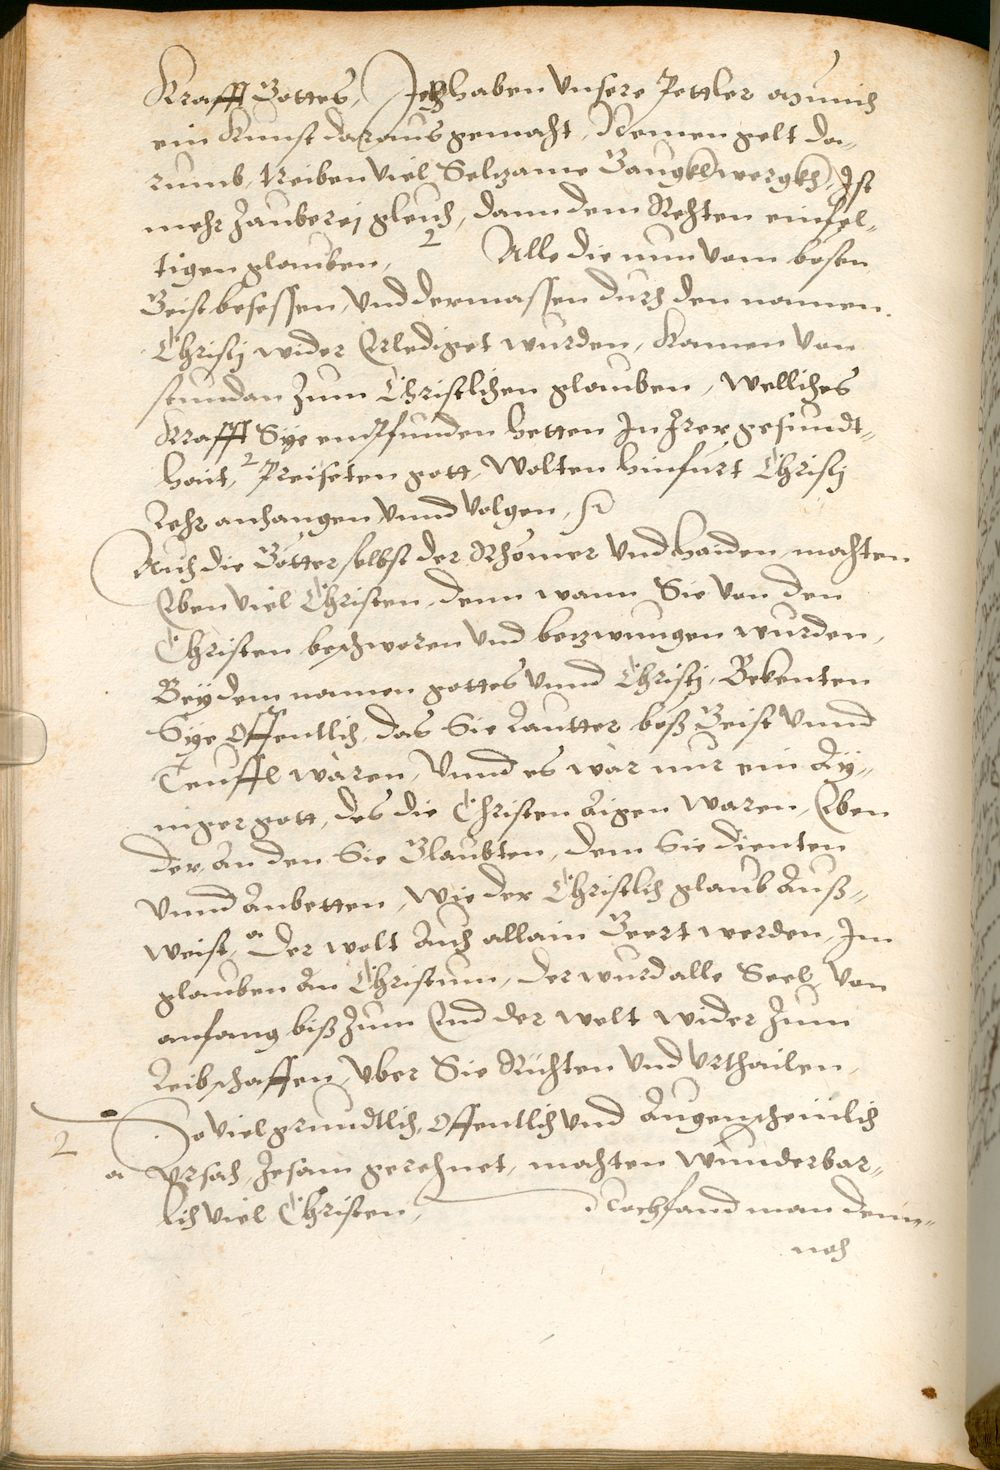 Krafft Gottes, Jetz haben Unsere Pettler Munich
ein Kunst daraus gemacht, Nemen gelt da„
rumb, treiben viel Seltzame Gaugklwergkh, Ist
mehr Zauberej gleich, dann dem Rechten einfel„
tigen glauben, 2 Alle die nun vom bosen
Geist besessen, Und dermassen durch den namen.
Christj wider Erlediget wurden, Komen von
stundan zum Christlichen glauben, Welliches
Krafft Sye empfunden hetten In Irer gesundt„
hait, 2 Preiseten gott, Wolten hinfurt Christj
Lehr anhangen, Unnd Volgen,
Auch die Götter selbst der Rhömer Und haiden, machten
Eben viel Christen, denn wann Sie von den
Christen beschworen Und bezwungen wurden,
Bey dem namen gottes Unnd Christj, Bekenten
Sye Offentlich, das Sie Lautter boss Geist Unnd
Teuffl wären, Unnd es wär nur ein Ay„
niger gott, des die Christen aigen waren, Eben
der, an den Sie Glaubten, dem Sie dienten
Unnd Anbetten, Wie der Christlich glaub Auß„
weist, a Der wolt Auch allain Geert werden, Im
glauben An Christum, der wurd alle Seel, Von
anfang biß Zum End der welt wider Zum
Leib schaffen, Uber Sie Richten Und Urthailen,
So viel grundtlich, Offentlich Und Augenscheinlich
2
a Ursach, Zesam gerechnet, machten Wunderbar„
lich viel Christen, Noch fand man denn„
noch